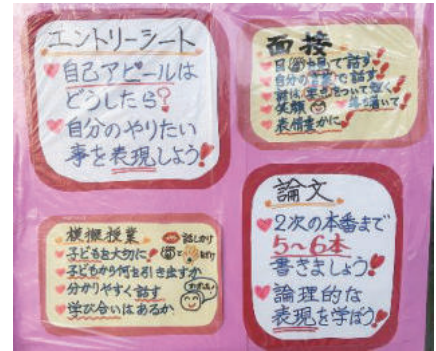 エントリーシート
自己アピールは
どうしたら?
自分のやりたい
事を表現しよう!
面接
目を見て話す!
自分の言葉で話す!
笑顔
落ち着いて!
表情豊かに!
模擬授業
話しかけ
子どもを大切に!
子どもから何を引き出すか
分かりやすく話す
学び合いはあるか
論文
2次の本番まで
5~6本
書きましょう!
論理的な
表現を学ぼう!